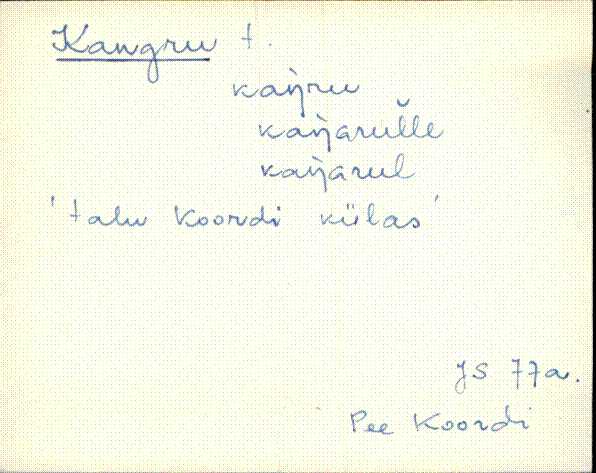 Kangru t.
kaŋru
kaŋarulle
kaŋarul
'talu Koordi külas'
JS 77a.
Pee Koordi